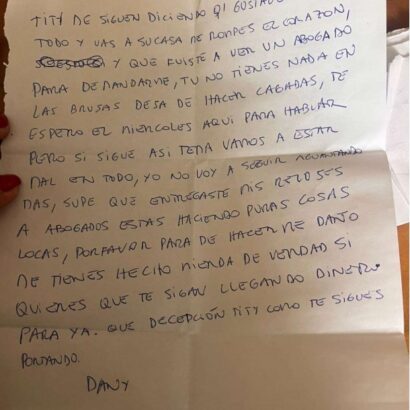 TITY DE SIGUEN DICIENDO QI GUSTAVO
TODO Y VAS A SU CASA ME ROMPES EL CORAZON,
Y QUE FUISTE A VER UN ABOGADO
PARA DEMANDARME, TU NO TIENES NADA EN
LAS BRUSAS DESA DE HACER CAGADAS, TE
ESPERO EL MIERCOLES AQUI PARA HABLAR
PERO SI SIGUE ASI TODA VAMOS A ESTAR
MAL EN TODO, YO NO VOY A SEGUIR AGUANTANDO
MAS, SUPE QUE ENTREGASTE MIS RELOSES
A ABOGADOS ESTAS HACIENDO PURAS COSAS
LOCAS, PORFAVOR PARA DE HACERME DAÑO
ME TIENES HECHO MIERDA DE VERDAD SI
QUIERES QUE TE SIGAN LLEGANDO DINERO
PARA YA. QUE DECEPCIÓN TITY COMO TE SIGUES
PORTANDO.
DANY